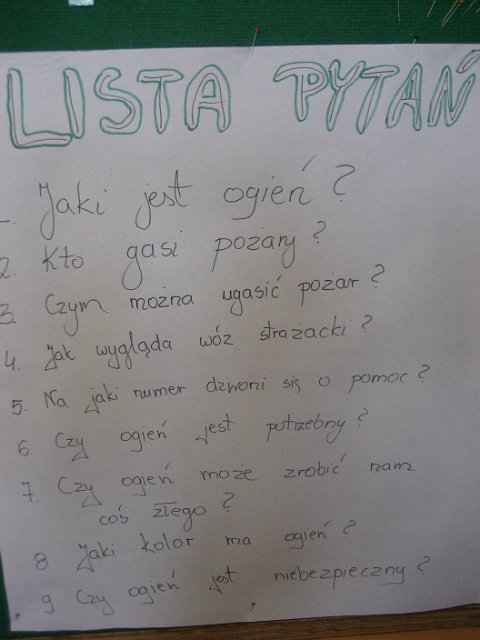 LISTA PYTAŃ
1. Jaki jest ogień?
2. Kto gasi pożary?
3. Czym można ugasić pożar?
4. Jak wygląda wóz strażacki?
5. Na jaki numer dzwoni się o pomoc?
6. Czy ogień jest potrzebny?
7. Czy ogień może zrobić nam
coś złego?
8 Jaki kolor ma ogień?
9 Czy ogień jest niebezpieczny?